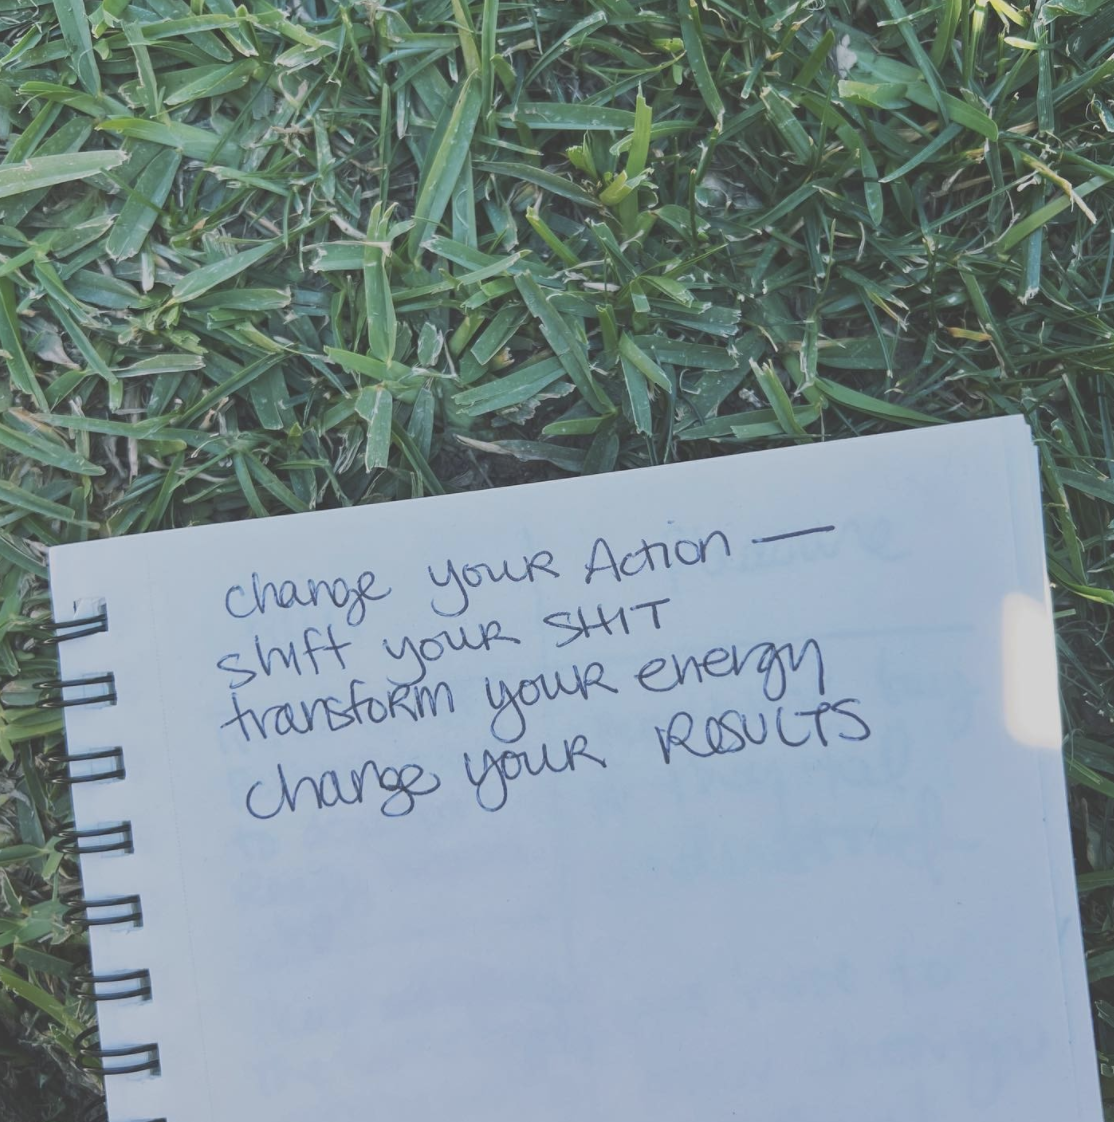 change your Action —
shift your SHIT
transform your energy
change your RESULTS